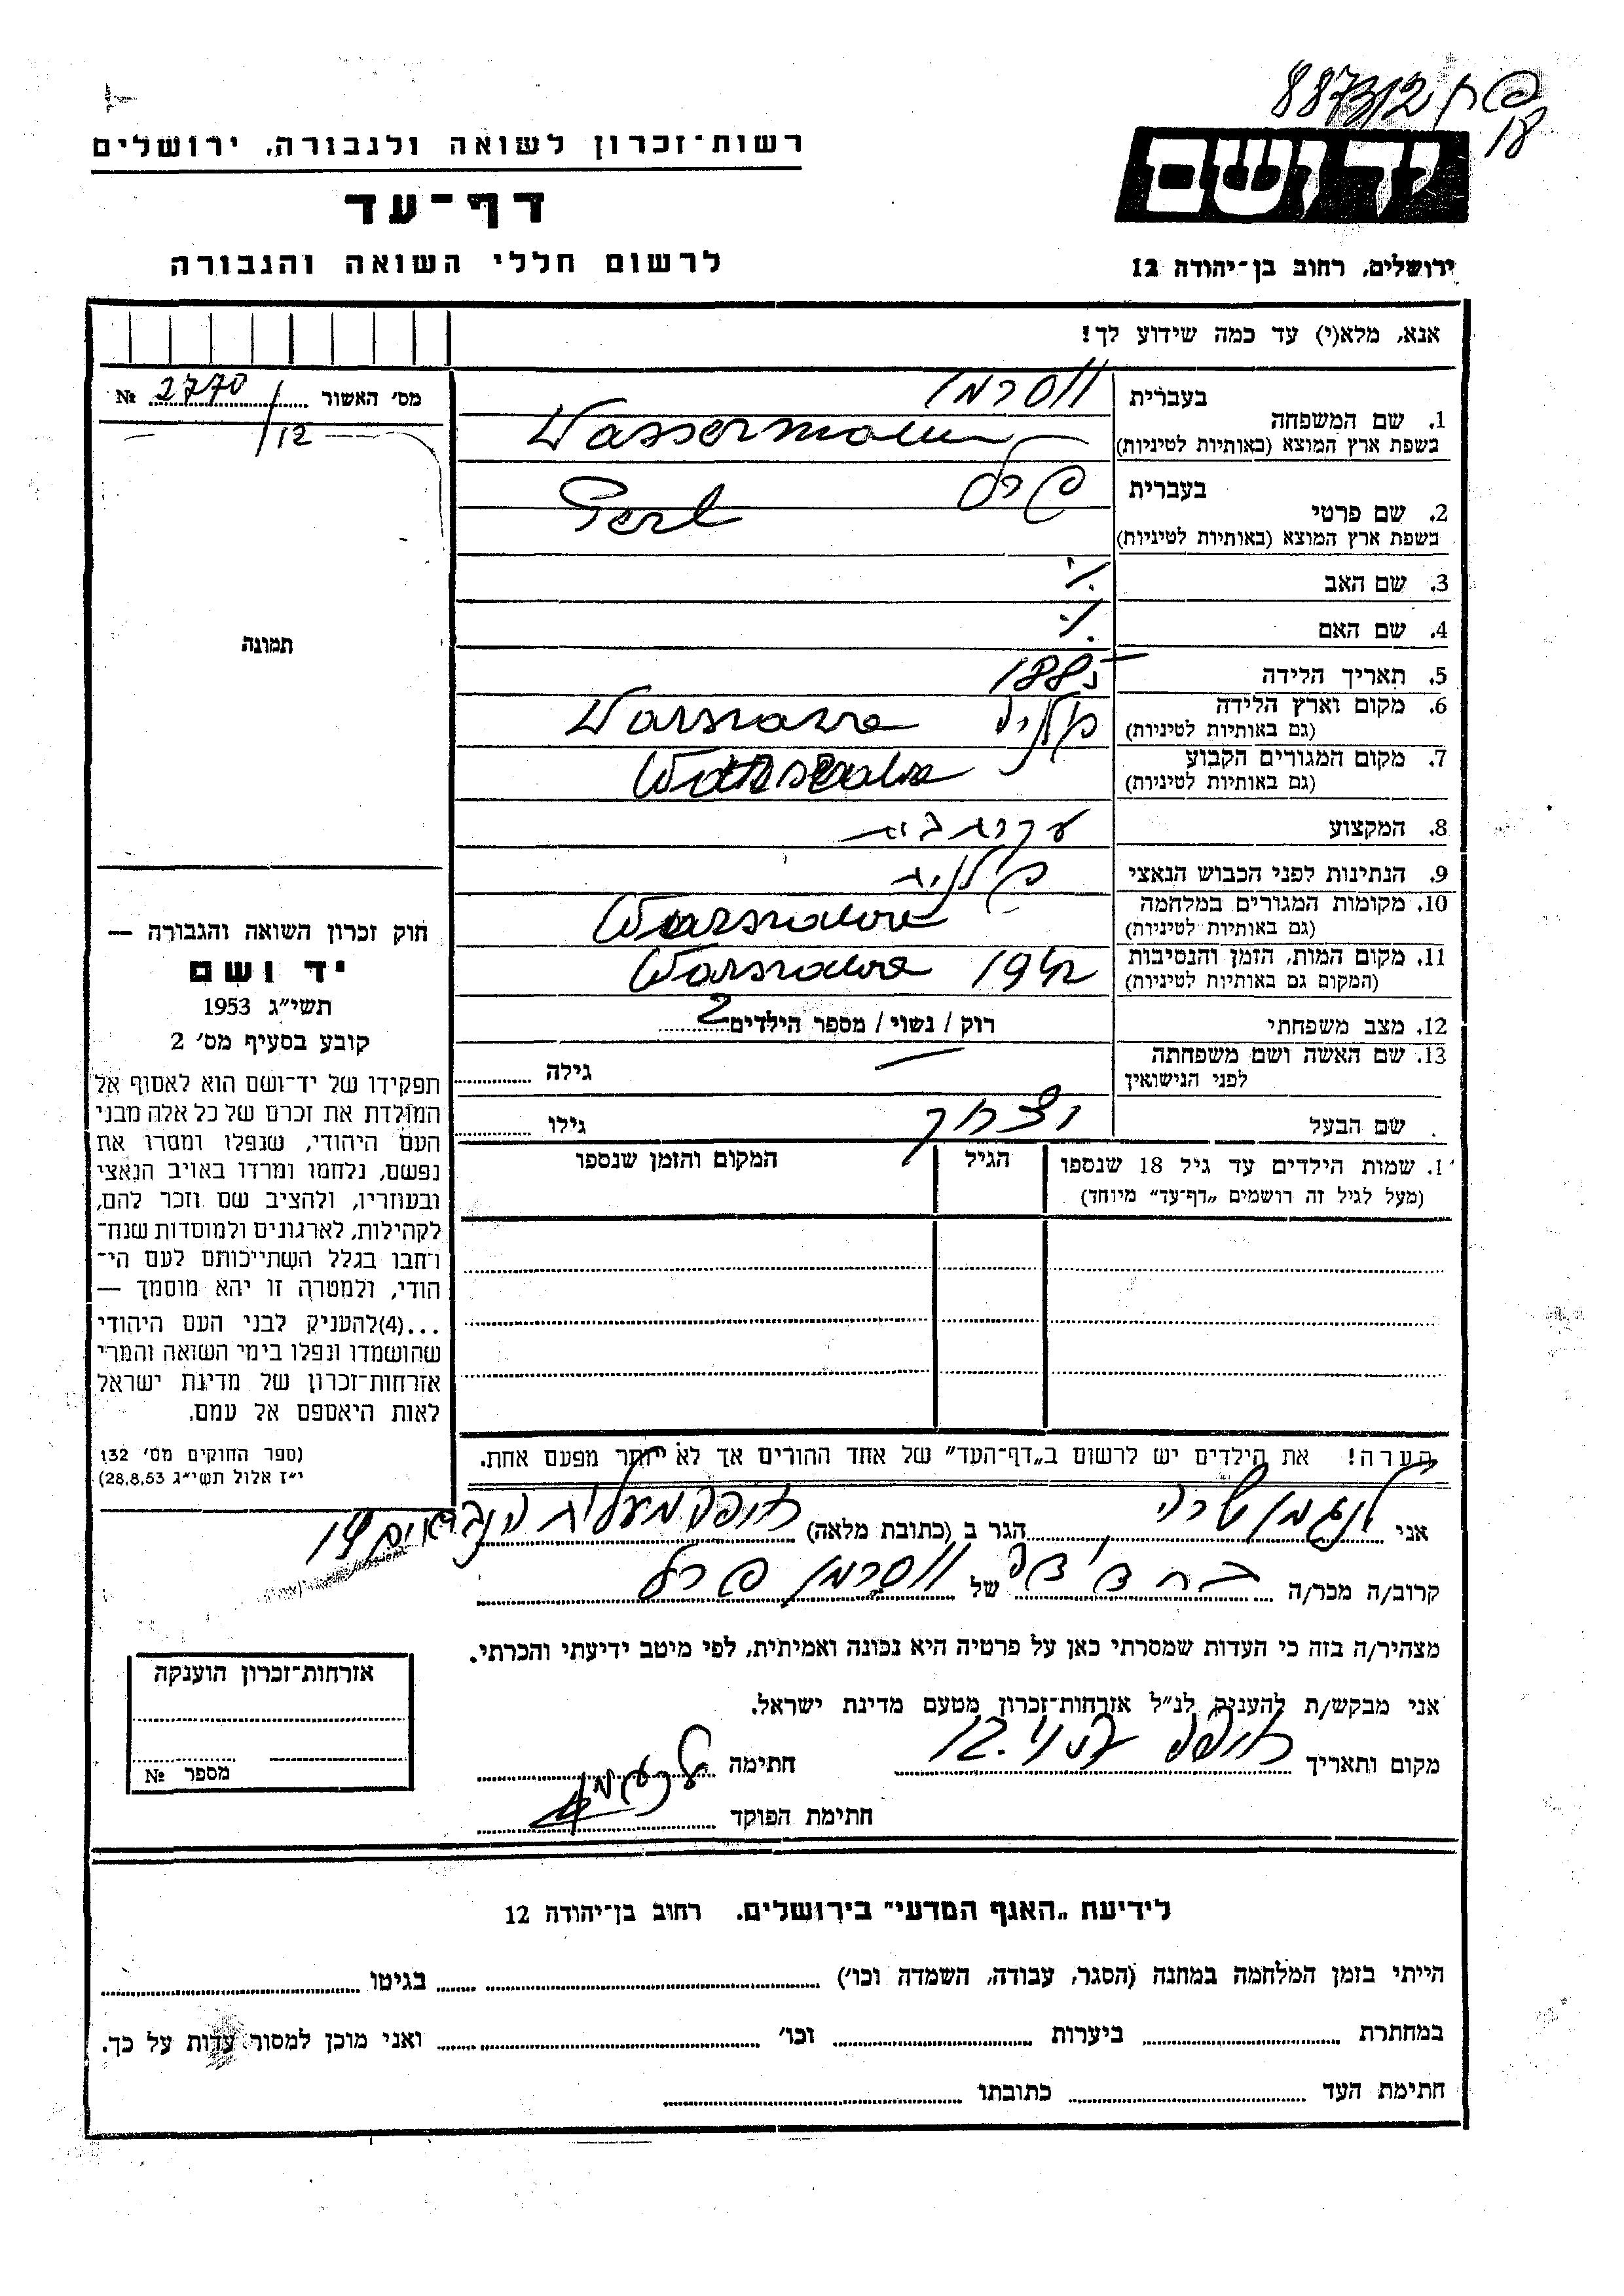 887312
18
יד ושם
ירושלים, רחוב בן־יהודה 12
רשות־זכרון לשואה ולגבורה, ירושלים
דף־עד
לרשום חללי השואה והגבורה
אנא, מלא(י) עד כמה שידוע לך!
מס׳ האשור 2770 №
/12
תמונה
1. שם המשפחה
בעברית ווסרמן
בשפת ארץ המוצא (באותיות לטיניות) Wassermann
2. שם פרטי
בעברית פרל
בשפת ארץ המוצא (באותיות לטיניות) Perl
3. שם האב ./.
4. שם האם ./.
5. תאריך הלידה 1885
6. מקום וארץ הלידה פולין Warszawa
(גם באותיות לטיניות)
7. מקום המגורים הקבוע Warszawa
(גם באותיות לטיניות)
8. המקצוע עקרת בית
9. הנתינות לפני הכבוש הנאצי פולנית
10. מקומות המגורים במלחמה Warszawa
(גם באותיות לטיניות)
11. מקום המות, הזמן והנסיבות 1942 Warszawa
(המקום גם באותיות לטיניות)
12. מצב משפחתי רוק / נשוי / מספר הילדים 2
13. שם האשה ושם משפחתה — גילה
לפני הנישואין
שם הבעל יצחק גילו
1. שמות הילדים עד גיל 18 שנספו הגיל המקום והזמן שנספו
(מעל לגיל זה רושמים „דף־עד" מיוחד)
חוק זכרון השואה והגבורה —
יד ושם
תשי״ג 1953
קובע בסעיף מס׳ 2
תפקידו של יד־ושם הוא לאסוף אל
המולדת את זכרם של כל אלה מבני
העם היהודי, שנפלו ומסרו את
נפשם, נלחמו ומרדו באויב הנאצי
ובעוזריו, ולהציב שם וזכר להם,
לקהילות, לארגונים ולמוסדות שנח־
רחבו בגלל השתייכותם לעם הי־
הודי, ולמטרה זו יהא מוסמך —
...(4)להעניק לבני העם היהודי
שהושמדו ונפלו בימי השואה והמרי
אזרחות־זכרון של מדינת ישראל
לאות היאספם אל עמם.
(ספר החוקים מס׳ 132
י״ז אלול תשי״ג 28.8.53)
הערה! את הילדים יש לרשום ב„דף־העד" של אחד ההורים אך לא יותר מפעם אחת.
אני שרה הגר ב (כתובת מלאה) חיפה מעלות הנביאים 19
קרוב/ה מכר/ה של ווסרמן פרל
מצהיר/ה בזה כי העדות שמסרתי כאן על פרטיה היא נכונה ואמיתית, לפי מיטב ידיעתי והכרתי.
אני מבקש/ת להעניק לנ״ל אזרחות־זכרון מטעם מדינת ישראל.
מקום ותאריך חיפה חתימה
חתימת הפוקד
אזרחות־זכרון הוענקה
מספר №
לידיעת „האגף המדעי" בירושלים, רחוב בן־יהודה 12
הייתי בזמן המלחמה במחנה (הסגר, עבודה, השמדה וכו׳) בגיטו
במחתרת ביערות וכו׳ ואני מוכן למסור עדות על כך.
חתימת העד כתובתו